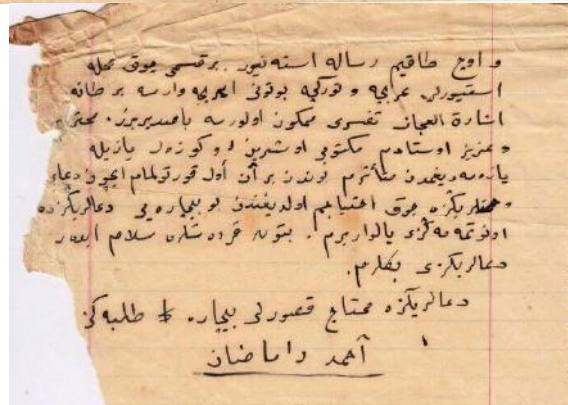 و اوچ طاقیم رساله استه نیور. برقسمی چوق عجله
استیورلر عربجه و تورکجه بوتونی ایچریجه وارسه بر طانه
اشارة العجاز تفسیری ممکون اولورسه باصدیریرز. محترم
و عزیز اوستادم مکتوبی او شیرین و کوزل یازیله
یازه مه دیغمدن متأثرم بوندن بر آن أول قورتولمام ایچون دعاء
چوق احتیاجم اولدیغندن بو بیچاره یی دعالریکزده
اونوتمه مه کزی یالواریرم. بتون قرده شلره سلام ایدر
دعالریکزی بکلرم.
دعالریکزه محتاج قصورلی بیچاره طلبه کز
أحمد راماضان